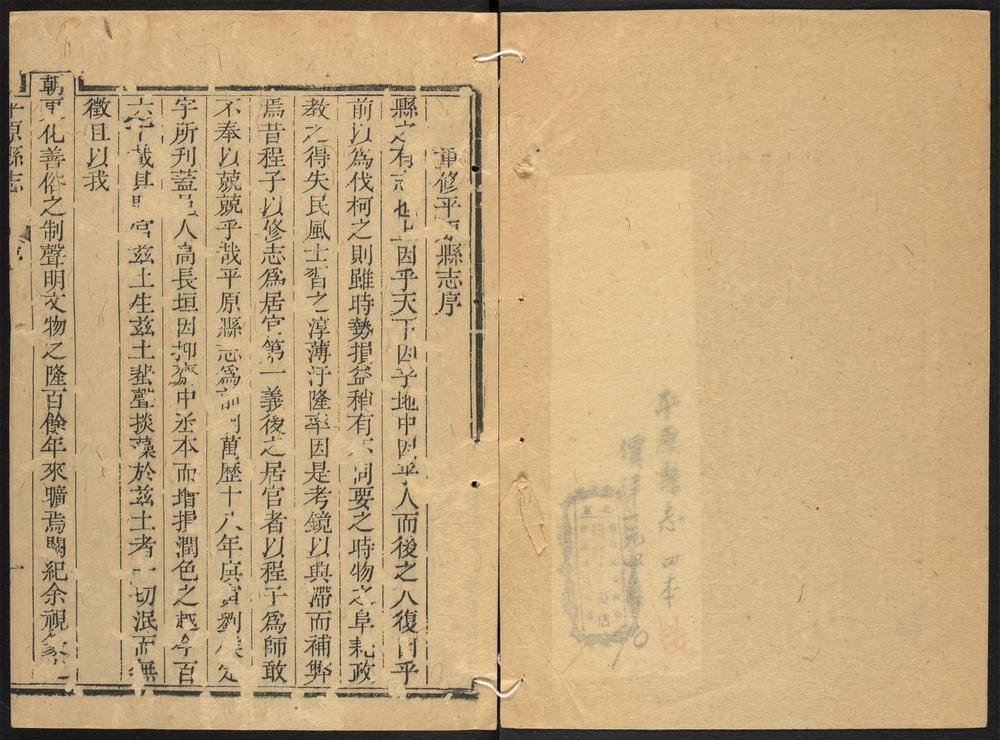 重修平原縣志序
縣之有志也上因乎天下因乎地中因乎人而後之人復因乎
前以為伐柯之則雖時勢損益稍有不同要之時物之阜耗政
教之得失民風士習之淳薄汙隆率因是考鏡以興滯而補弊
焉昔程子以修志為居官第一義後之居官者以程子為師敢
不奉以兢兢乎哉平原縣志為前明萬歷十八年庚寅劉侯
字所刊蓋邑人高長垣因抑齋中丞本而增損潤色之越今百
六十載其官茲土生茲土蜚聲掞藻於茲土者一切泯而無
徵且以我
朝重化善俗之制聲明文物之隆百餘年來曠焉闕紀余視篆
平原縣志
序
一
平原縣志 四本
價洋一元